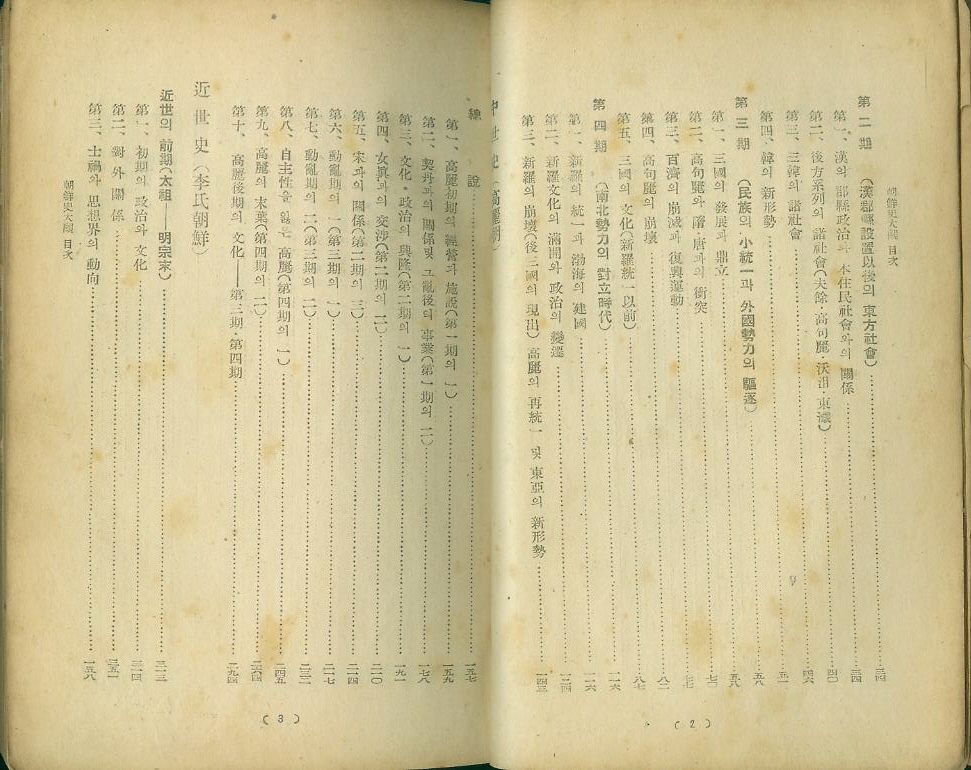 朝鮮史大觀 目次
第二期 (漢郡縣設置以後의 東方社會)……三四
第一、漢의 郡縣政治과 本住民社會와의 關係……三四
第二、後方系列의 諸社會(夫餘·高句麗·沃沮·東濊)……四〇
第三、三韓의 諸社會……四六
第四、韓의 新形勢
第三期 (民族의 小統一과 外國勢力의 驅逐)……五八
第一、三國의 發展과 鼎立……五八
第二、高句麗와 隋·唐과의 衝突……七〇
第三、百濟의 崩滅과 復興運動
第四、高句麗의 崩壞……八二
第五、三國의 文化(新羅統一以前)……八七
第四期 (南北勢力의 對立時代)……一一六
第一、新羅의 統一과 渤海의 建國……一一六
第二、新羅文化의 滿開와 政治의 變遷……一二四
第三、新羅의 崩壞(後三國의 現出) 高麗의 再統一 및 東亞의 新形勢……一四三
(2)
中世史(高麗朝)
總說……一五七
第一、高麗初期의 經營과 施設(第一期의 一)……一五九
第二、契丹과의 關係및 그 亂後의 事業(第一期의 二)……一七八
第三、文化·政治의 興隆(第二期의 一)……一九一
第四、女眞과의 交涉(第二期의 二)……二一〇
第五、宋과의 關係(第二期의 三)……二二四
第六、動亂期의 一(第三期의 一)
第七、動亂期의 二(第三期의 二)……二三二
第八、自主性을 잃은 高麗(第四期의 一)……二四五
第九、高麗의 末葉(第四期의 二)……二六四
第十、高麗後期의 文化——第三期·第四期……二九四
近世史(李氏朝鮮)
近世의 前期(太祖——明宗末)……三一三
第一、初期의 政治와 文化……三一四
第二、對外關係……三五一
第三、士禍와 思想界의 動向……三五八
朝鮮史大觀 目次
(3)